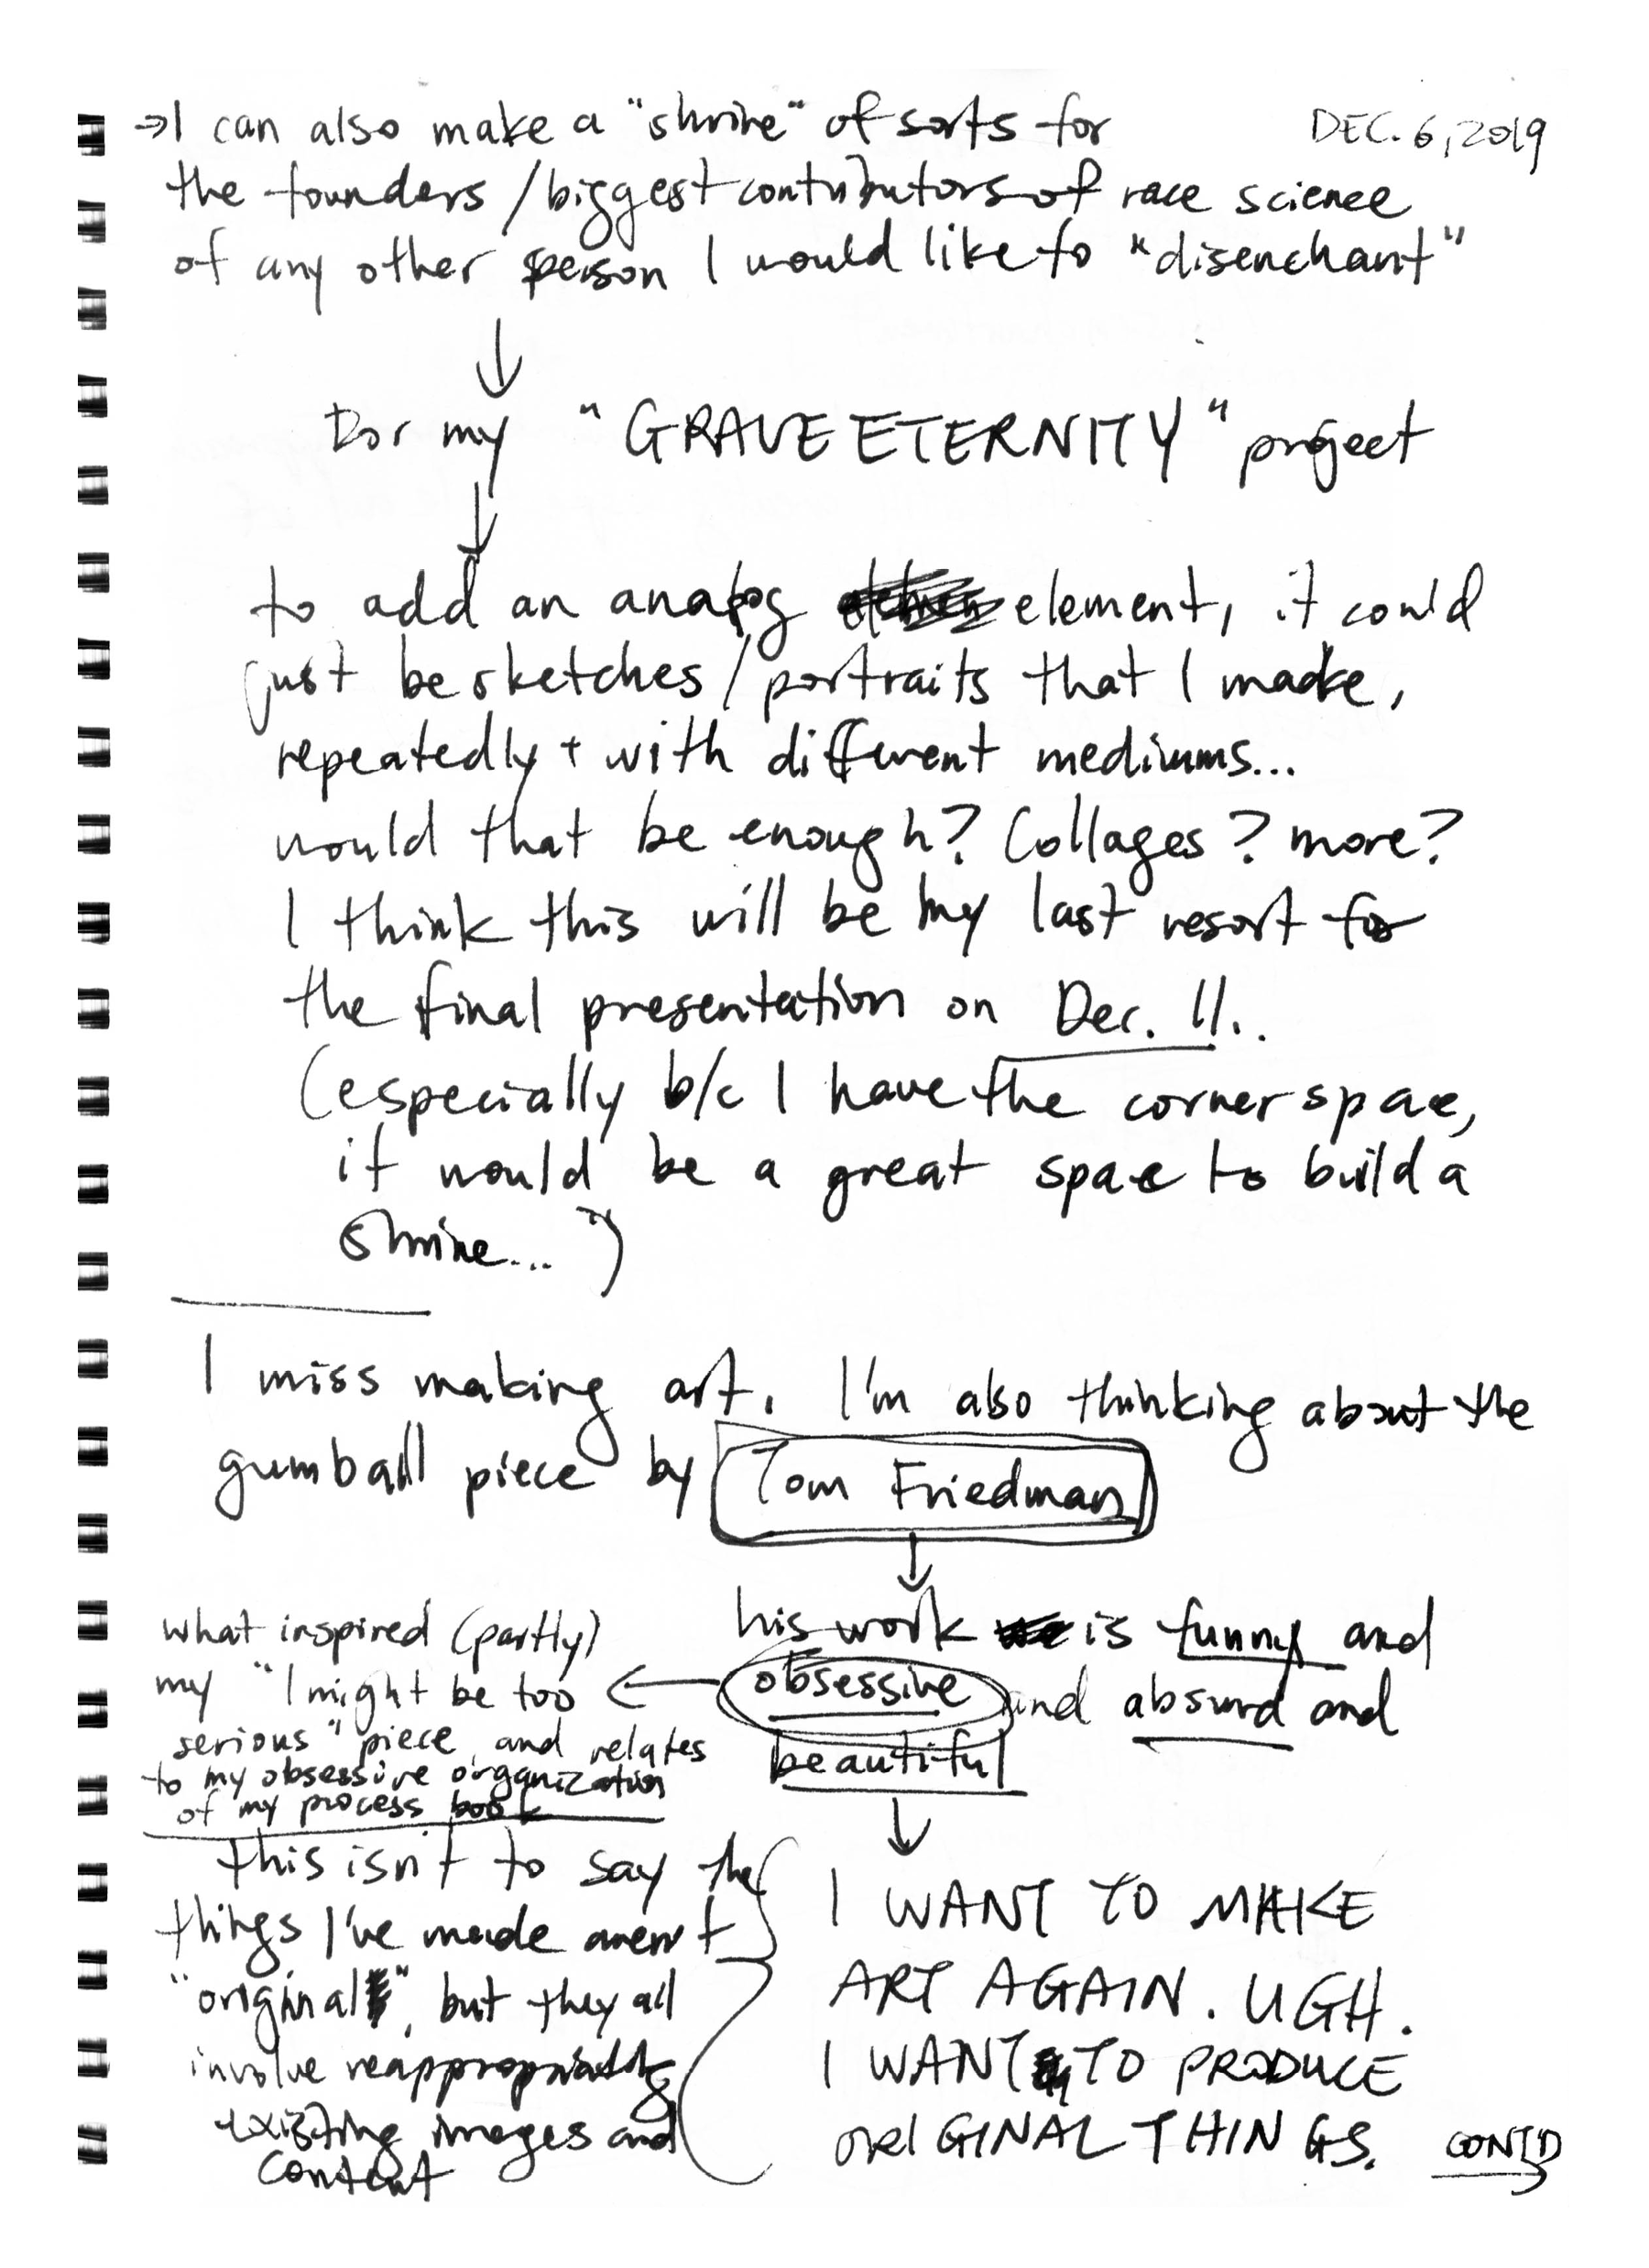 DEC. 6, 2019
→ I can also make a "shrine" of sorts for
the founders / biggest contributors of race science
of any other person I would like to "disenchant"
↓
For my "GRAVE ETERNITY" project
↓
to add an analog element, it could
just be sketches / portraits that I make,
repeatedly + with different mediums...
would that be enough? Collages? more?
I think this will be my last resort for
the final presentation on Dec. 11..
(especially b/c I have the corner space,
it would be a great space to build a
shrine...")
I miss making art. I'm also thinking about the
gumball piece by Tom Friedman
↓
his work is funny and
obsessive and absurd and
beautiful
←
what inspired (partly)
my "I might be too
serious" piece, and relates
to my obsessive organization
of my process book
↓
I WANT TO MAKE
ART AGAIN. UGH.
I WANT TO PRODUCE
ORIGINAL THINGS.
this isn't to say the
things I've made aren't
"original", but they all
involve reappropriating
existing images and
content
CONT'D